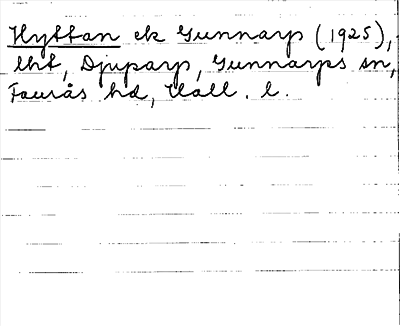 Hyttan ek Gunnarp (1925),
lht, Djuparp, Gunnarps sn,
Faurås hd, Hall. l.